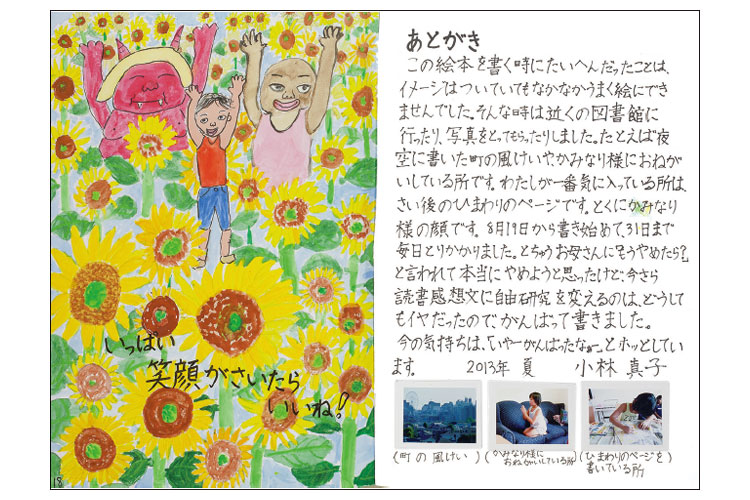 いっぱい
笑顔がさいたら
いいね!
18
あとがき
この絵本を書く時にたいへんだったことは、
イメージはついていてもなかなかうまく絵にでき
ませんでした。そんな時は近くの図書館に
行ったり、写真をとってもらったりしました。たとえば夜
空に書いた町の風けいや、かみなり様におねが
いしている所です。わたしが一番気に入っている所は、
さい後のひまわりのページです。とくにかみなり
様の顔です。8月19日から書き始めて、31日まで
毎日とりかかりました。とちゅうお母さんに「もうやめたら?」
と言われて本当にやめようと思ったけど、今さら
読書感想文に自由研究を変えるのは、どうして
もイヤだったので、がんばって書きました。
今の気持ちは、「いやーがんばったなぁ。」とホッとしてい
ます。 2013年 夏 小林 真子
(町の風けい)
(かみなり様に
おねがいしている所)
(ひまわりのページを
書いている所)